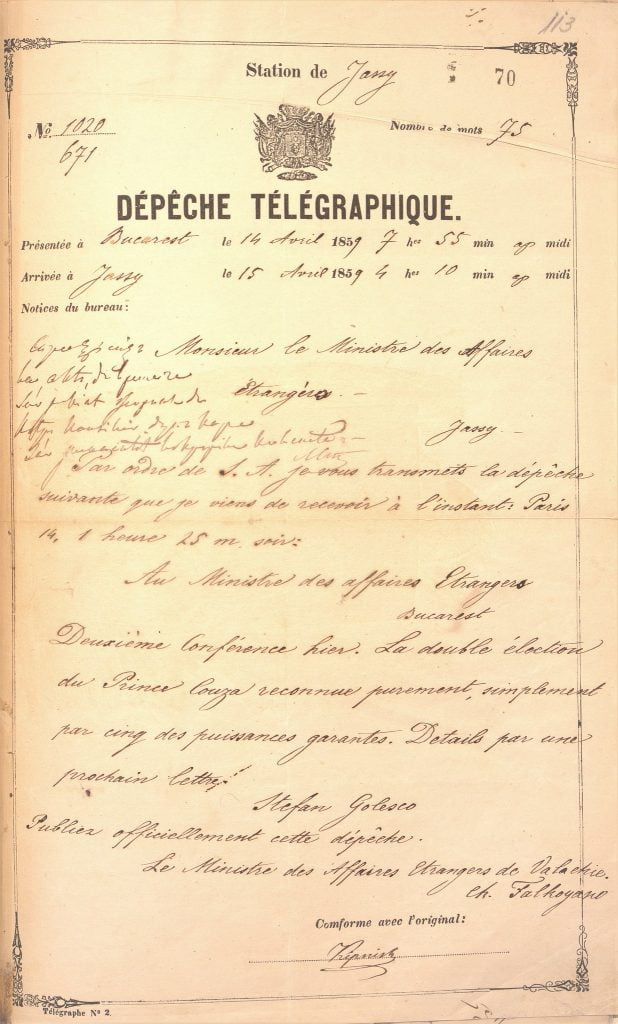 113
Station de Jassy 70
No 1020 Nombre de mots 75
671
DÉPÊCHE TÉLÉGRAPHIQUE.
Présentée à Bucarest le 14 Avril 1859 7 hes 55 min ap midi
Arrivée à Jassy le 15 Avril 1859 4 hes 10 min ap midi
Notices du bureau:
Monsieur le Ministre des Affaires
Etrangers. –
Jassy –
Par ordre de S. A. je vous transmets la dépêche
suivante que je viens de recevoir à l'instant: Paris
14, 1 heure 25 m. soir:
Au Ministre des affaires Etrangers
Bucarest
Deuxième Conférence hier. La double élection
du Prince Couza reconnue purement, simplement
par cinq des puissances garantes. Details par une
prochain lettre.
Stefan Golesco
Publiez officiellement cette dépêche.
Le Ministre des Affaires Etrangers de Valachie.
Ch. Falkoyano
Comforme avec l'original:
Télégraphe No 2.